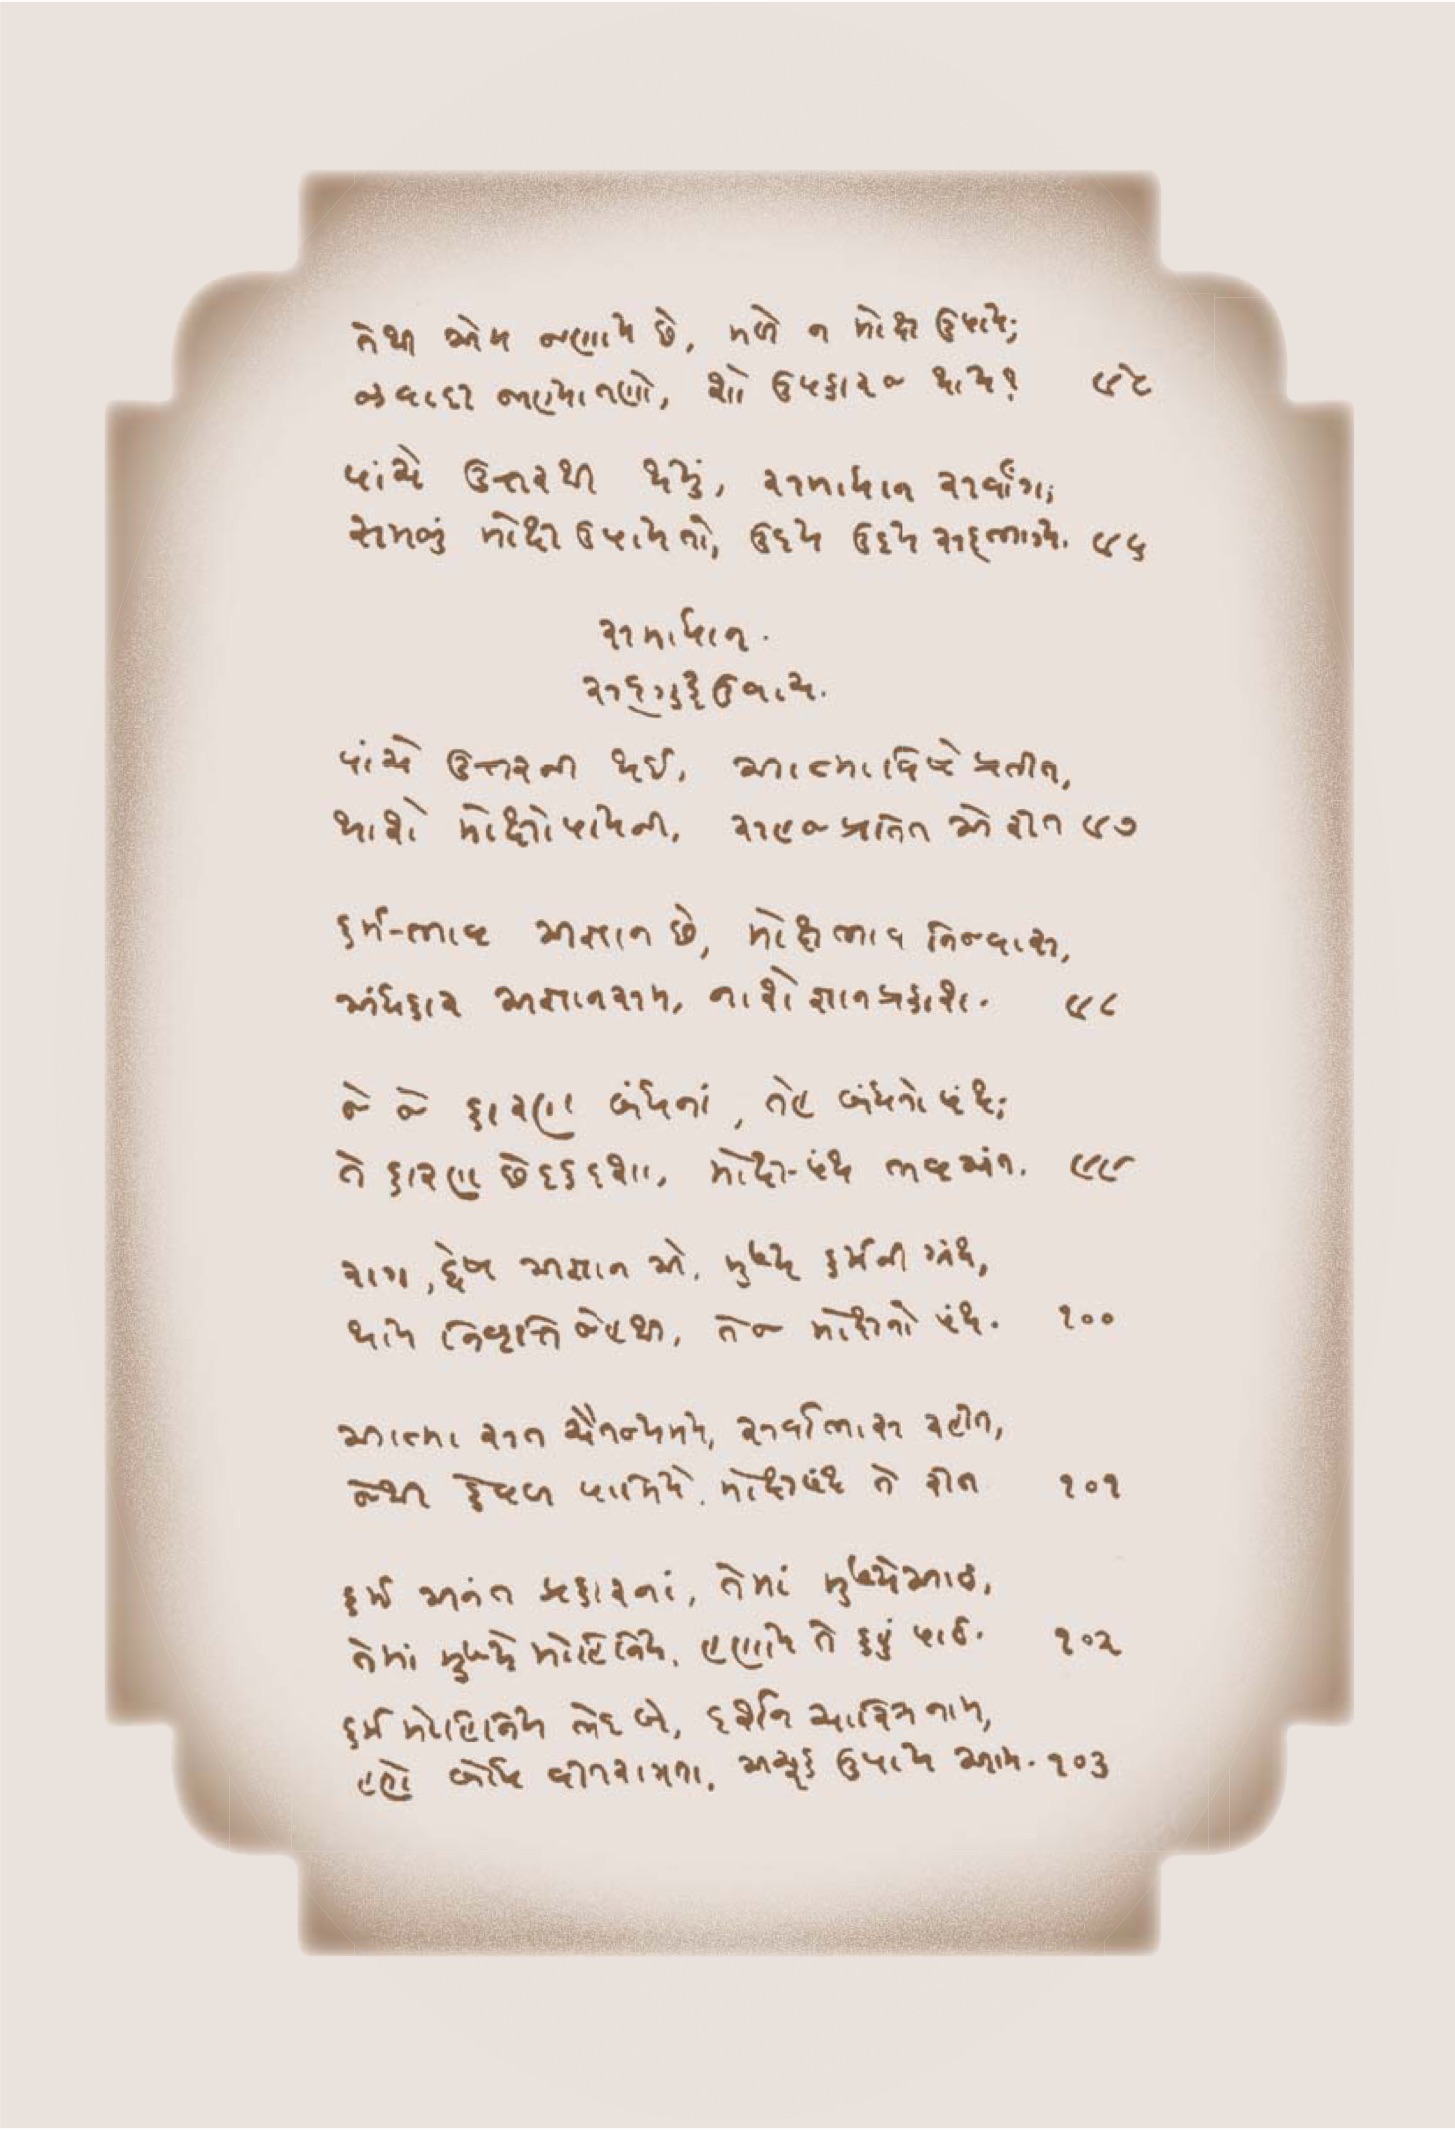 તેથી એમ જણાય છે, મળે ન મોક્ષ ઉપાય;
જીવાદી જાણ્યાતણો, શો ઉપકારજ થાય? ૯૫
પાંચે ઉત્તરથી થયું, સમાધાન સર્વાંગ;
સમજું મોક્ષ ઉપાયતો, ઉદય ઉદય સદ્ભાગ્ય. ૯૬
સમાધાન.
સદ્ગુરુ ઉવાચ.
પાંચે ઉત્તરની થઈ, આત્માવિષે પ્રતીત,
થાશે મોક્ષોપાયની, સહજ પ્રતિત એ રીત ૯૭
કર્મ-ભાવ અજ્ઞાન છે, મોક્ષ ભાવ નિજવાસ,
અંધકાર અજ્ઞાનસમ, નાશે જ્ઞાનપ્રકાશ. ૯૮
જે જે કારણ બંધનાં, તેહ બંધનો પંથ;
તે કારણ છેદકદશા, મોક્ષ-પંથ ભવઅંત. ૯૯
રાગ, દ્વેષ અજ્ઞાન એ, મુખ્ય કર્મની ગ્રંથ,
થાય નિવૃત્તિ જેહથી, તેજ મોક્ષનો પંથ. ૧૦૦
આત્મા સત ચૈતન્યમય, સર્વાભાસ રહીત,
જેથી કેવળ પામિયે, મોક્ષપંથ તે રીત ૧૦૧
કર્મ અનંત પ્રકારનાં, તેમાં મુખ્યે આઠ,
તેમાં મુખ્યે મોહિનિય, હણાય તે કહું પાઠ. ૧૦૨
કર્મ મોહિનિય ભેદ બે, દર્શન ચારિત્ર નામ,
હણે બોધ વીતરાગતા, અચૂક ઉપાય આમ. ૧૦૩